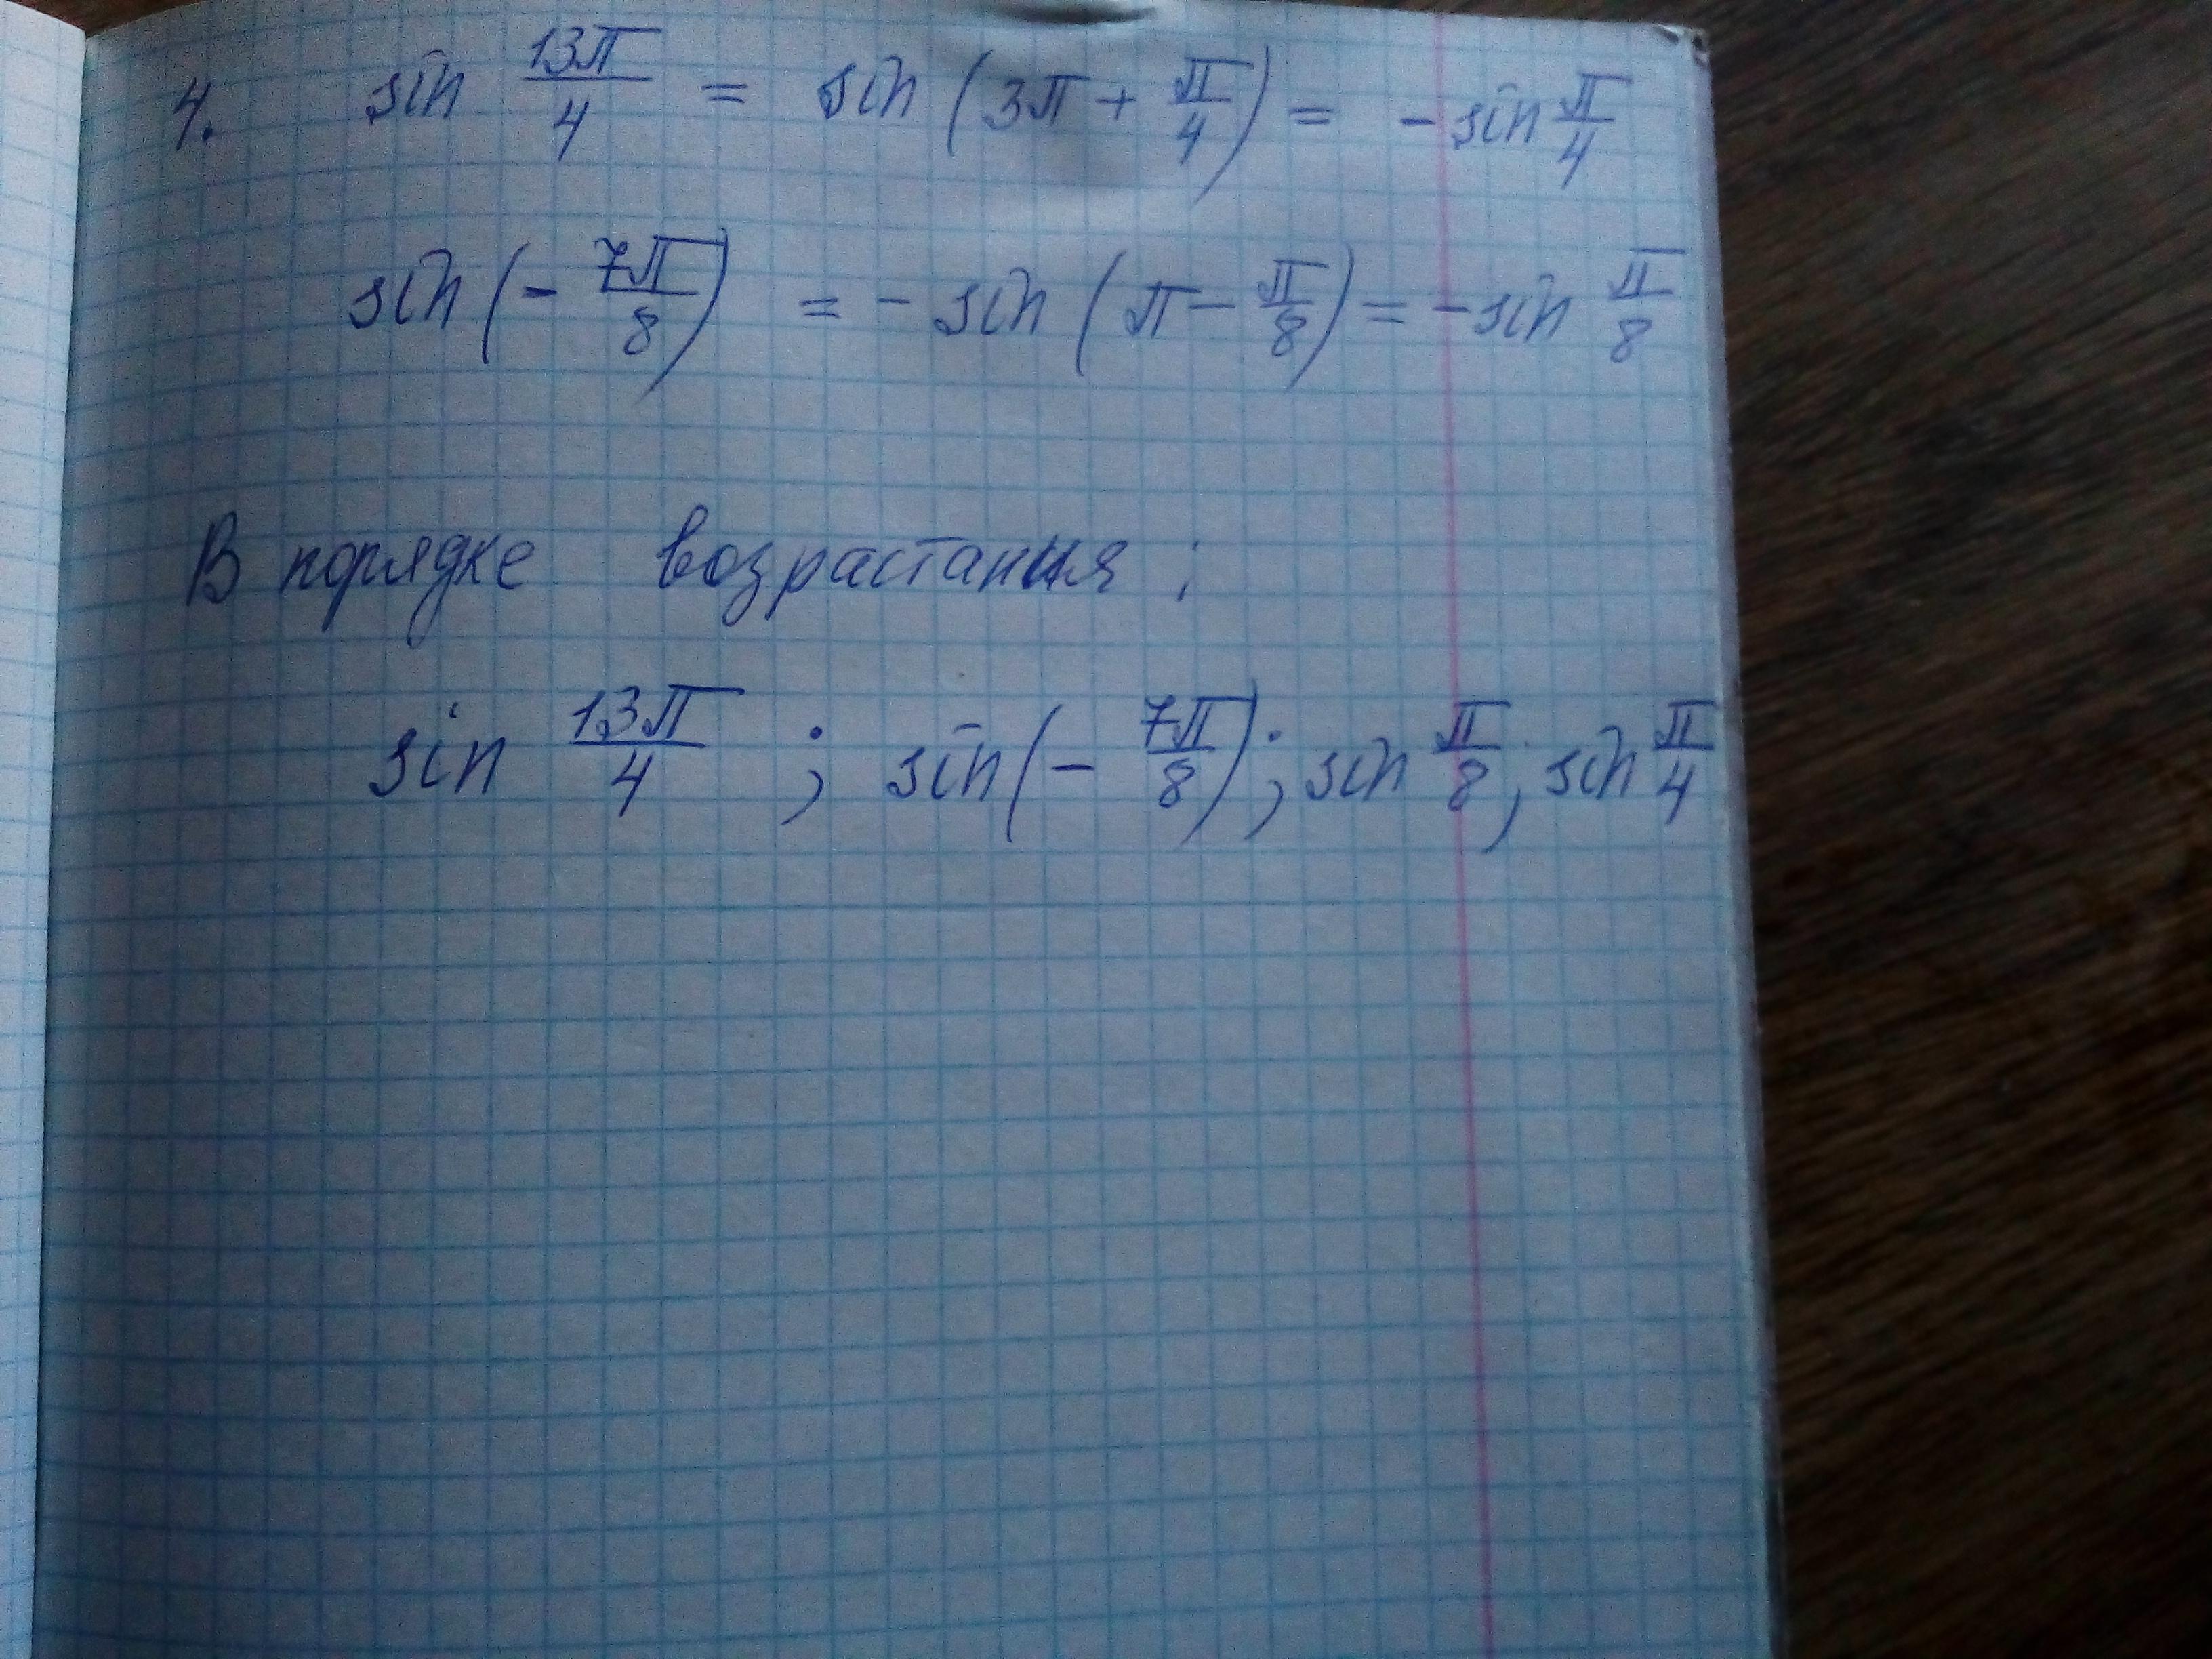 4. sin 13π/4 = sin (3π + π/4) = - sin π/4
sin (- 7π/8) = - sin (π - π/8) = - sin π/8
В порядке возрастания:
sin 13π/4 ; sin (- 7π/8); sin π/8; sin π/4